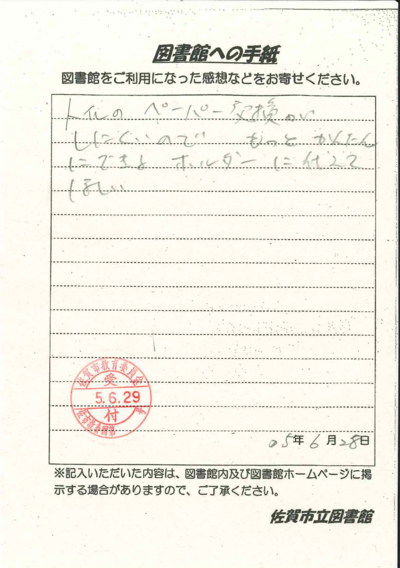 図書館への手紙
図書館をご利用になった感想などをお寄せください。
トイレの ペーパー交換が
しにくいので もっと かんたん
にできる ホルダーに代えて
ほしい
佐賀市教育委員会
受
5.6.29
付
05年6月28日
※記入いただいた内容は、図書館内及び図書館ホームページに掲
示する場合がありますので、ご了承ください。
佐賀市立図書館